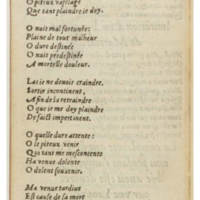 O piteux vasselage
Que tant plaindre ie dey.
O nuit mal fortunee:
Plaine de tout malheur
O dure destinee
O nuit perderee
A mortelle douleur.
Las ie ne deuoie craindre,
Sortir incontinent,
A fin de la retraindre
O que ie me dey plaindre
De fait impertinent.
O quelle dure attente:
O le piteux venir
Qui tant me mescontente
Ha venue dolente
O dolent souuenir.
Ma venue tardiue
Est cause de la mort